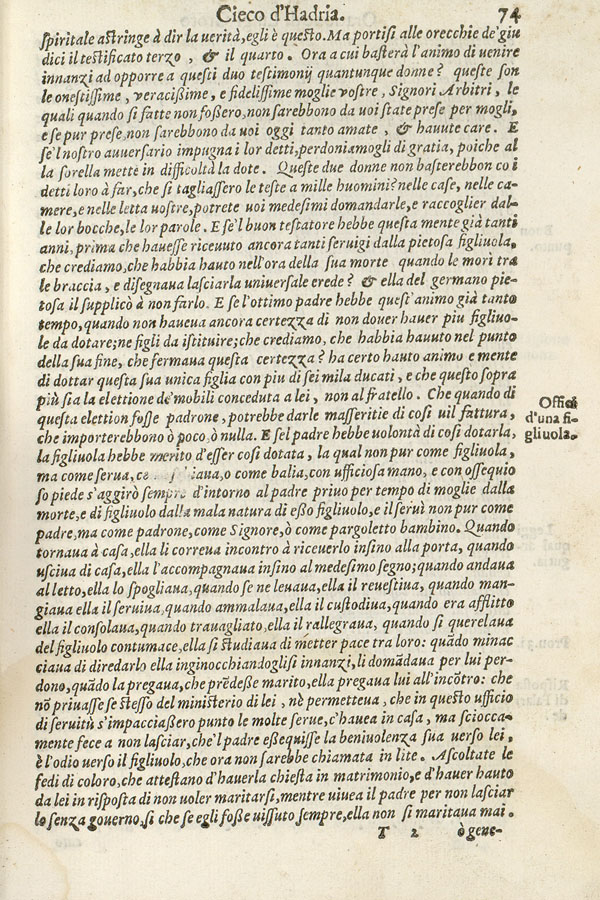 Cieco d'Hadria. 74
spiritale astringe à dir la uerità, egli è questo. Ma portisi alle orecchie de' giu
dici il testificato terzo, & il quarto. Ora a cui basterà l'animo di uenire
innanzi ad opporre a questi duo testimonij quantunque donne? queste son
le onestissime, veracißime, e fidelissime moglie vostre, Signori Arbitri, le
quali quando si fatte non foßero, non sarebbono da uoi state prese per mogli,
e se pur prese, non sarebbono da uoi oggi tanto amate, & hauute care. E
se'l nostro auuersario impugna i lor detti, perdoniamogli di gratia, poiche al
la sorella mette in difficoltà la dote. Queste due donne non basterebbon co i
detti loro à far, che si tagliassero le teste a mille huomini? nelle case, nelle ca-
mere, e nelle letta vostre, potrete uoi medesimi domandarle, e raccoglier dal-
le lor bocche, le lor parole. E se'l buon testatore hebbe questa mente già tanti
anni, prima che hauesse riceuuto ancora tanti seruigi dalla pietosa figliuola,
che crediamo, che habbia hauto nell'ora della sua morte quando le morì tra
le braccia, e disegnaua lasciarla uniuersale erede? & ella del germano pie-
tosa il supplicò à non farlo. E se l'ottimo padre hebbe quest'animo già tanto
tempo, quando non haueua ancora certezza di non douer hauer piu figliuo-
le da dotare; ne figli da istituire; che crediamo, che habbia hauuto nel punto
della sua fine, che fermaua questa certezza? ha certo hauto animo e mente
di dottar questa sua unica figlia con piu di sei mila ducati, e che questo sopra
più sia la elettione de' mobili conceduta a lei, non al fratello. Che quando di
questa elettion fosse padrone, potrebbe darle masseritie di così uil fattura,
che importerebbono ò poco, ò nulla. E se l padre hebbe uolontà di così dotarla,
la figliuola hebbe merito d'esser così dotata, la qual non pur come figliuola,
ma come serua, iaua, o come balia, con ufficiosa mano, e con ossequio
so piede s'aggirò sempre d'intorno al padre priuo per tempo di moglie dalla
morte, e di figliuolo dalla mala natura di eßo figliuolo, e il seruì non pur come
padre, ma come padrone, come Signore, ò come pargoletto bambino. Quando
tornaua à casa, ella li correua incontro à riceuerlo insino alla porta, quando
usciua di casa, ella l'accompagnaua insino al medesimo segno; quando andaua
al letto, ella lo spogliaua, quando se ne leuaua, ella il reuestiua, quando man-
giaua ella il seruiua, quando ammalaua, ella il custodiua, quando era afflitto
ella il consolaua, quando trauagliato, ella il rallegraua, quando si querelaua
del figliuolo contumace, ella si studiaua di metter pace tra loro: quādo minac
ciaua di diredarlo ella inginocchiandoglisi innanzi, li domādaua per lui per-
dono, quādo la pregaua, che prēdeße marito, ella pregaua lui all'incōtro: che
nō priuasse se stesso del ministerio di lei, nè permetteua, che in questo ufficio
di seruitù s'impacciaßero punto le molte serue, c'hauea in casa, ma sciocca-
mente fece a non lasciar, che'l padre eßequisse la beniuolenza sua uerso lei,
è l'odio uerso il figliuolo, che ora non sarebbe chiamata in lite. Ascoltate le
fedi di coloro, che attestano d'hauerla chiesta in matrimonio, e d'hauer hauto
da lei in risposta di non uoler maritarsi, mentre uiuea il padre per non lasciar
lo senza gouerno, si che se egli foße uissuto sempre, ella non si maritaua mai.
T 2 ò gene-
Offici
d'una fi-
gliuola.